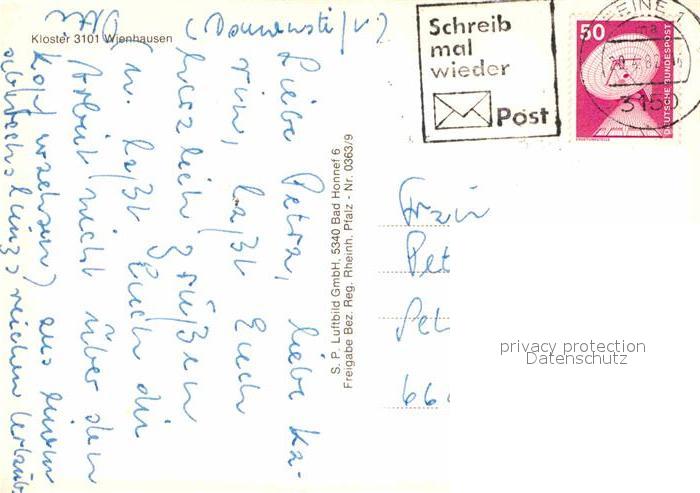 Kloster 3101 Wienhausen
(Donnerstag)
Liebe Petra, liebe Ka-
rin, laßt Euch
herzlich grüßen
u. laßt Euch die
Arbeit nicht über den
Kopf wachsen, aus einem
abwechslungsreichen Urlaub.
S. P. Luftbild GmbH, 5340 Bad Honnef 6
Freigabe Bez. Reg. Rheinh. Pfalz - Nr. 0363/9
Schreib
mal
wieder
Post
PEINE 1
3150
50
DEUTSCHE BUNDESPOST
Frau
Pet
Pet
66
privacy protection
Datenschutz